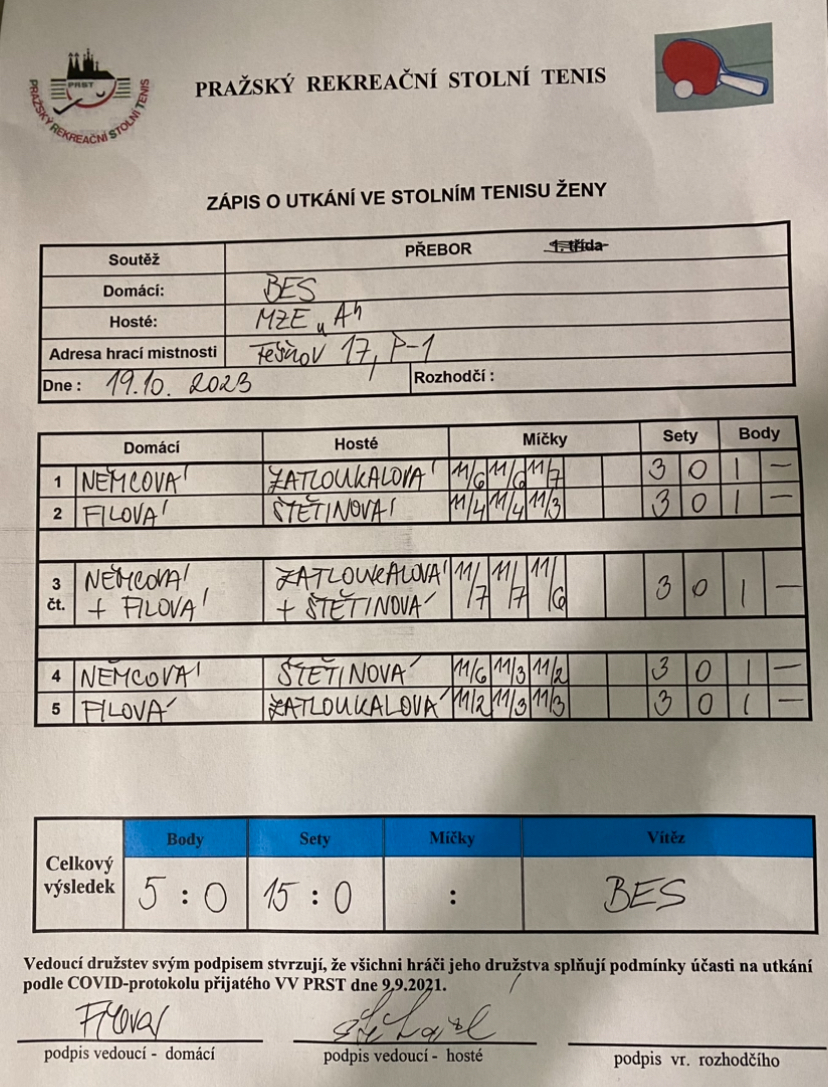 PRST
PRAŽSKÝ REKREAČNÍ STOLNÍ TENIS
PRAŽSKÝ REKREAČNÍ STOLNÍ TENIS
ZÁPIS O UTKÁNÍ VE STOLNÍM TENISU ŽENY
Soutěž PŘEBOR 1. třída
Domácí: BES
Hosté: MZE
Adresa hrací mistnosti TĚŠNOV 17, P-1
Dne : 19.10. 2023 Rozhodčí :
Domácí Hosté Míčky Sety Body
1 NĚMCOVÁ ZATLOUKALOVÁ 11/6 11/6 11/7 3 0 1 —
2 FILOVÁ ŠTĚTINOVÁ 11/4 11/4 11/3 3 0 1 —
3 čt. NĚMCOVÁ + FILOVÁ ZATLOUKALOVÁ + ŠTĚTINOVÁ 11/7 11/7 11/6 3 0 1 —
4 NĚMCOVÁ ŠTĚTINOVÁ 11/6 11/3 11/2 3 0 1 —
5 FILOVÁ ZATLOUKALOVÁ 11/2 11/3 11/3 3 0 1 —
Body Sety Míčky Vítěz
Celkový výsledek 5 : 0 15 : 0 : BES
Vedoucí družstev svým podpisem stvrzují, že všichni hráči jeho družstva splňují podmínky účasti na utkání
podle COVID-protokolu přijatého VV PRST dne 9.9.2021.
Filová
podpis vedoucí - domácí podpis vedoucí - hosté podpis vr. rozhodčího